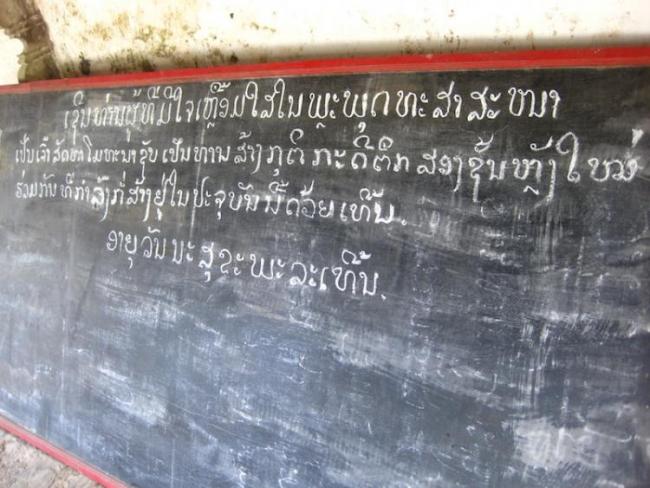 ເຊີນທ່ານຜູ້ທີ່ມີໃຈເຫຼື້ອມໃສໃນພຼະພຸດທະສາສະໜາ
ເປັນເຈົ້າສັດທາໂມທະນາຊັບເປັນທານສ້າງກຸຕິກະດີຕຶກສອງຊັ້ນຫຼັງໃຫວ່
ຮ່ວມກັນທີ່ກຳລັງກໍ່ສ້າງຢູ່ໃນປະຈຸບັນນີ້ດ້ວຍເທີ້ນ.
ອາຍຸວັນນະສຸຂະພະລະເທີ້ນ.